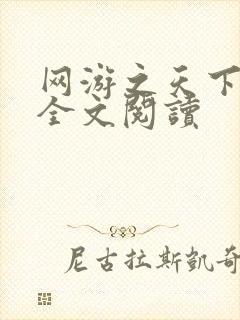 网游之天下
全文閱讀
尼古拉斯凯奇